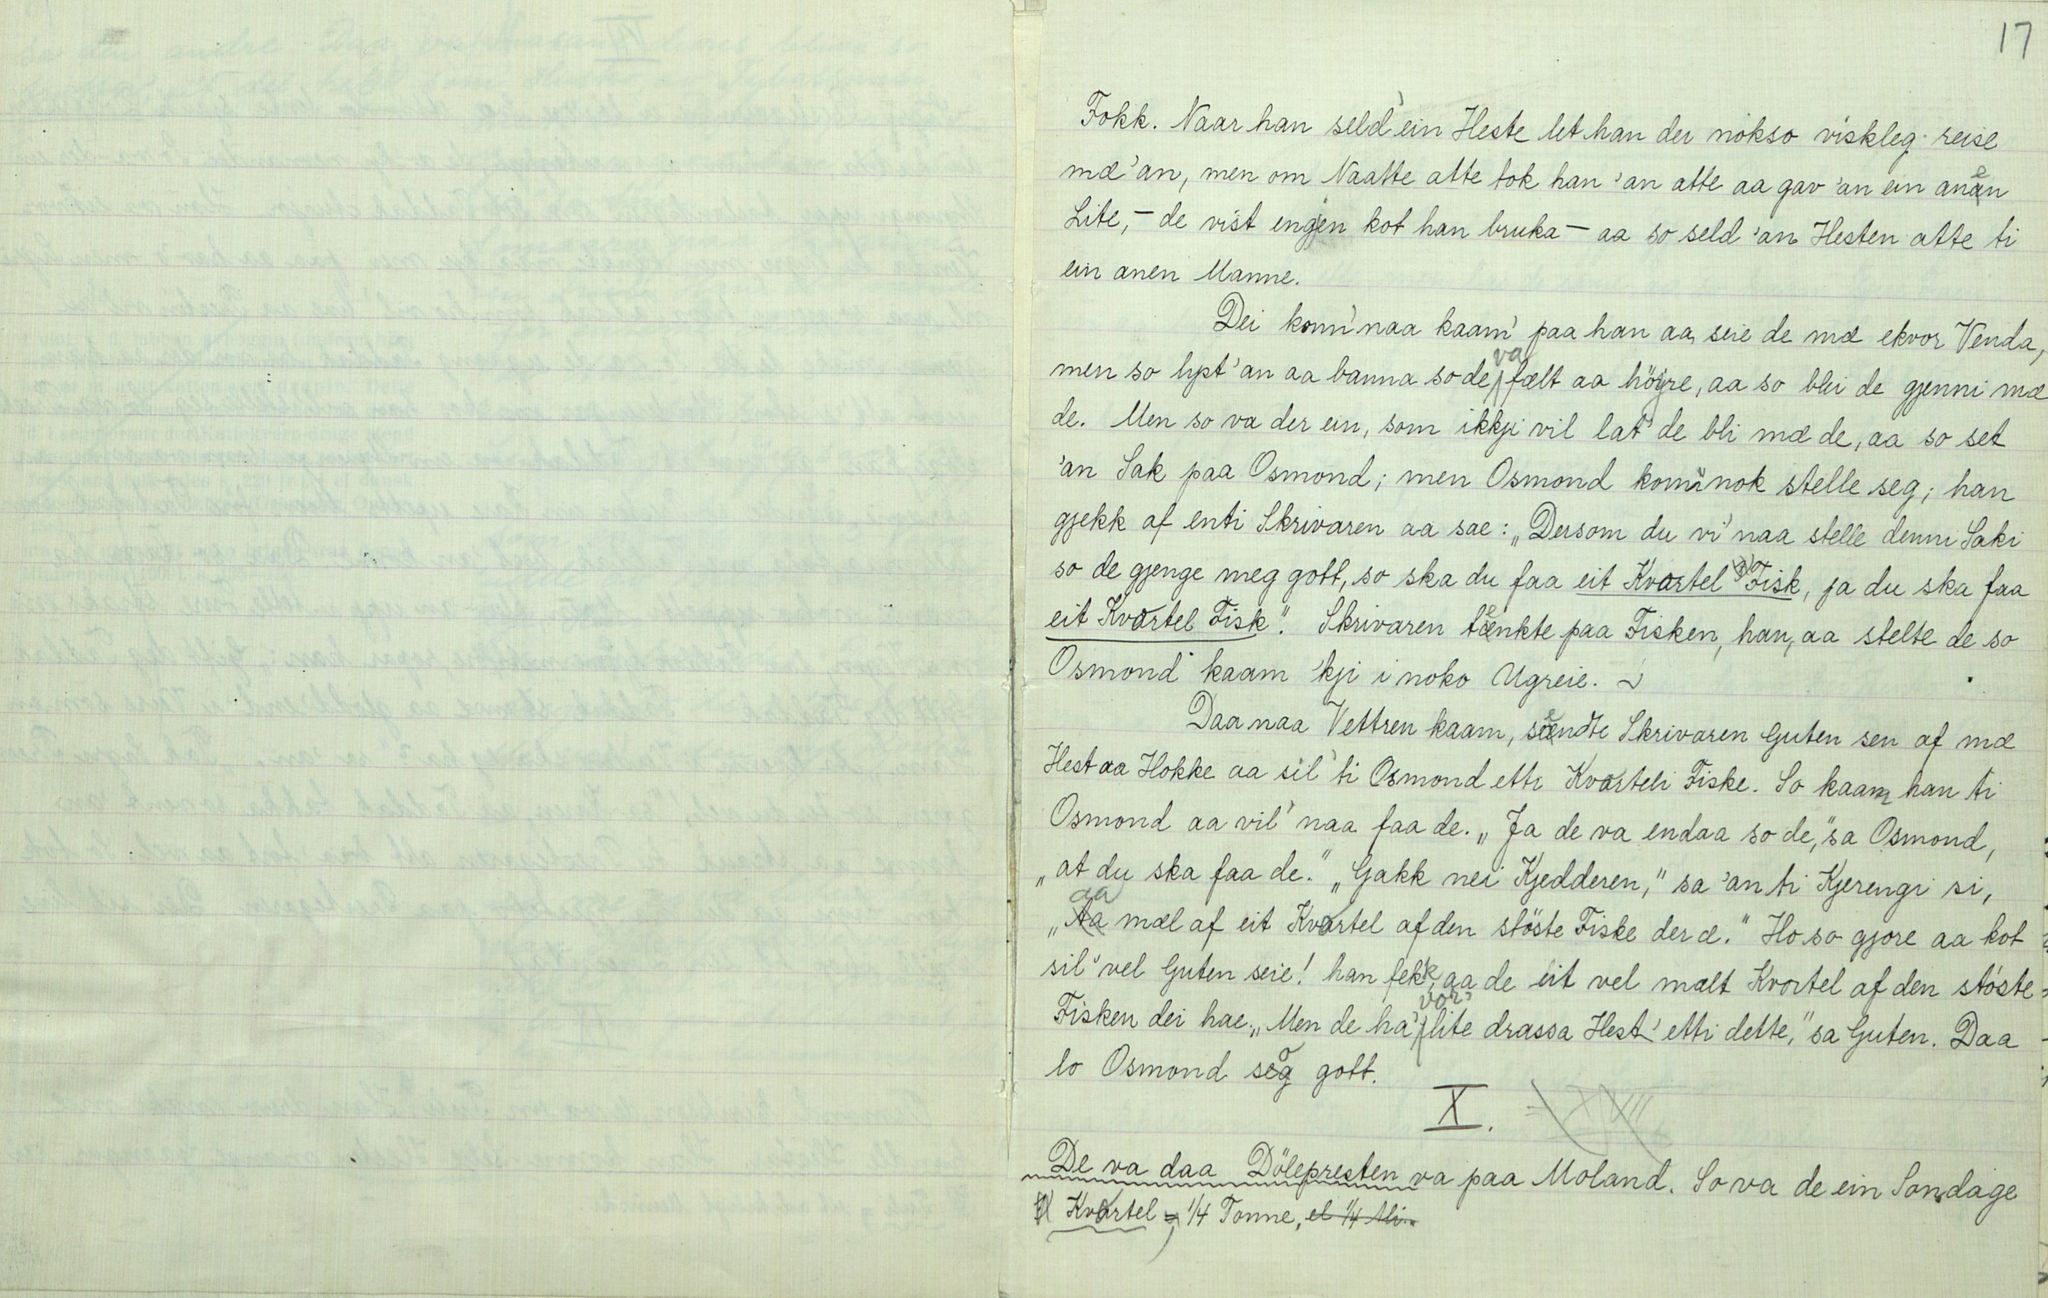 17
Fokk. Naar han seld' ein Heste let han dei nokso viskleg reise
mæ 'an, men om Naatte atte tok han 'an atte aa gav 'an ein anen
Lite, – de vist engjen kot han bruka – aa so seld 'an Hesten atte ti
ein anen Manne.
Dei kom' naa kaam' paa han aa seie de mæ ekvor Venda,
men so lypt 'an aa banna so de va fælt aa höyre, aa so blei de gjenni mæ
de. Men so va der ein, som ikkji vil lat' de bli mæ de, aa so set
'an Sak paa Osmond; men Osmond komi nok stelle seg; han
gjekk af enti Skrivaren aa sae: „Dersom du vi' naa stelle denni Saki
so de gjenge meg gott, so ska du faa eit Kvartel x) Fisk, ja du ska faa
eit Kvartel Fisk“. Skrivaren tenkte paa Fisken, han, aa stelte de so
Osmond kaam 'kji i noko Ugreie.
Daa naa Vettren kaam, sendte Skrivaren Guten sen af mæ
Hest aa Hokke aa sil' ti Osmond etti Kvarteli Fiske. So kaam han ti
Osmond aa vil' naa faa de. „Ja de va endaa so de,“ sa Osmond,
„at du ska faa de.“ „Gakk nei Kjedderen,“ sa 'an ti Kjerengi si,
„aa mæl af eit Kvartel af den stöste Fiske der æ.“ Ho so gjore aa kot
sil' vel Guten seie! han fekk aa de eit vel mælt Kvartel af den stöste
Fisken dei hae. „Men de ha' vor' lite drassa Hest' etti dette,“ sa Guten. Daa
lo Osmond sog gott.
X.
De va daa Dölepresten va paa Moland. So va de ein Sondage
x) Kvartel = 1/4 Tonne, el 1/4 Mi.